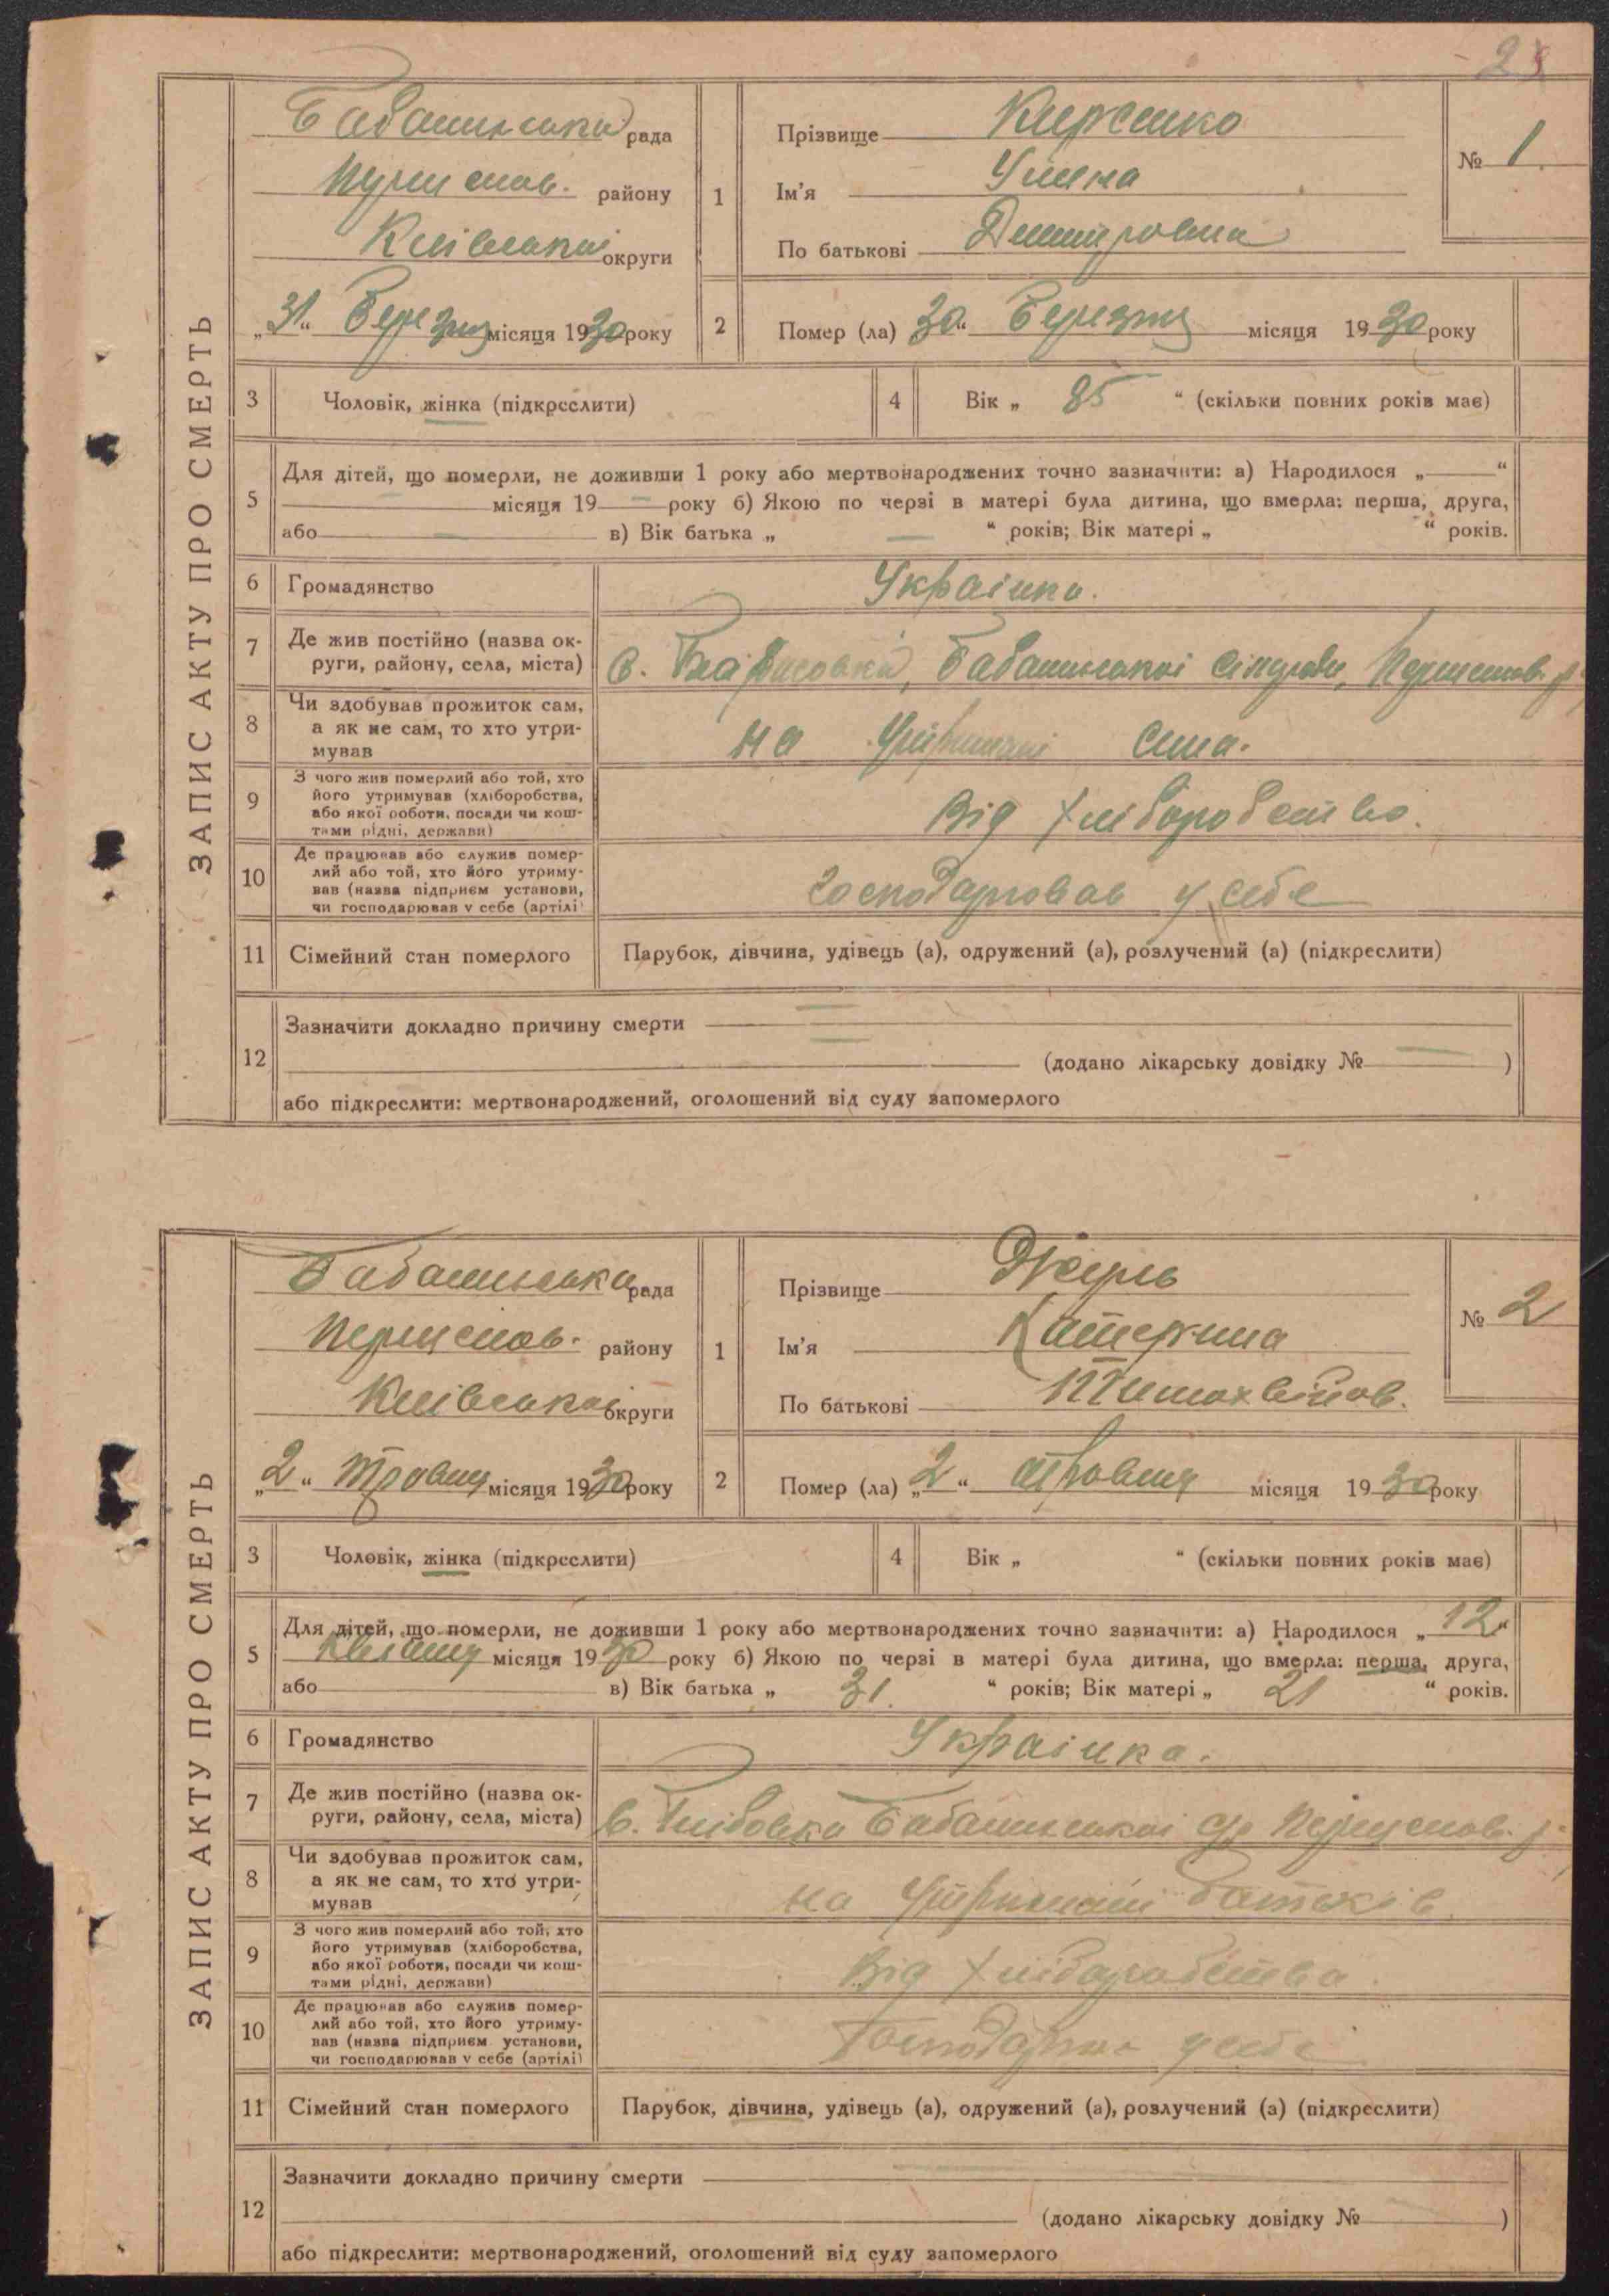 ЗАПИС АКТУ ПРО СМЕРТЬ
рада
району
Київської округи
„31“ Березня місяця 1930 року
1
Прізвище
Ім'я
По батькові
№ 1.
2
Помер (ла) 30“ Березня місяця 1930 року
3 Чоловік, жінка (підкреслити)
4 Вік „ 85 “ (скільки повних років має)
5 Для дітей, що померли, не доживши 1 року або мертвонароджених точно зазначити: а) Народилося „ — “
— місяця 19 — року б) Якою по черзі в матері була дитина, що вмерла: перша, друга,
або — в) Вік батька „ — “ років; Вік матері „ “ років.
6 Громадянство Українка.
7 Де жив постійно (назва ок-
руги, району, села, міста)
8 Чи здобував прожиток сам,
а як не сам, то хто утри-
мував
на утриманні сина.
9 З чого жив померлий або той, хто
його утримував (хліборобства,
або якої роботи, посади чи кош-
тами рідні, держави)
Від хліборобства.
10 Де працював або служив помер-
лий або той, хто його утриму-
вав (назва підприєм установи,
чи господарював у себе (артілі)
господарював у себе
11 Сімейний стан померлого Парубок, дівчина, удівець (а), одружений (а), розлучений (а) (підкреслити)
12 Зазначити докладно причину смерти —
— (додано лікарську довідку № — )
або підкреслити: мертвонароджений, оголошений від суду запомерлого
ЗАПИС АКТУ ПРО СМЕРТЬ
рада
району
Київської округи
„2“ травня місяця 1930 року
1
Прізвище
Ім'я Катерина
По батькові
№ 2
2
Помер (ла) „2“ травня місяця 1930 року
3 Чоловік, жінка (підкреслити)
4 Вік „ “ (скільки повних років має)
5 Для дітей, що померли, не доживши 1 року або мертвонароджених точно зазначити: а) Народилося „12“
Квітня місяця 1930 року б) Якою по черзі в матері була дитина, що вмерла: перша, друга,
або в) Вік батька „ 31. “ років; Вік матері „ 21 “ років.
6 Громадянство Українка.
7 Де жив постійно (назва ок-
руги, району, села, міста)
8 Чи здобував прожиток сам,
а як не сам, то хто утри-
мував
на утриманні батьків
9 З чого жив померлий або той, хто
його утримував (хліборобства,
або якої роботи, посади чи кош-
тами рідні, держави)
Від хліборобства.
10 Де працював або служив помер-
лий або той, хто його утриму-
вав (назва підприєм установи,
чи господарював у себе (артілі)
11 Сімейний стан померлого Парубок, дівчина, удівець (а), одружений (а), розлучений (а) (підкреслити)
12 Зазначити докладно причину смерти —
(додано лікарську довідку № )
або підкреслити: мертвонароджений, оголошений від суду запомерлого